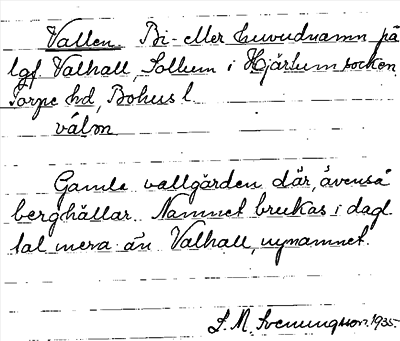 Vallen. Bi- eller huvudnamn på
lgf Valhall, Sollum i Hjärtum socken
Torpe hd, Bohus l.
Gamla vallgården där, ävenså
berghällar. Namnet brukas i dagl.
tal mera än Valhall, nynamnet.
S. M. Svenungsson. 1935.